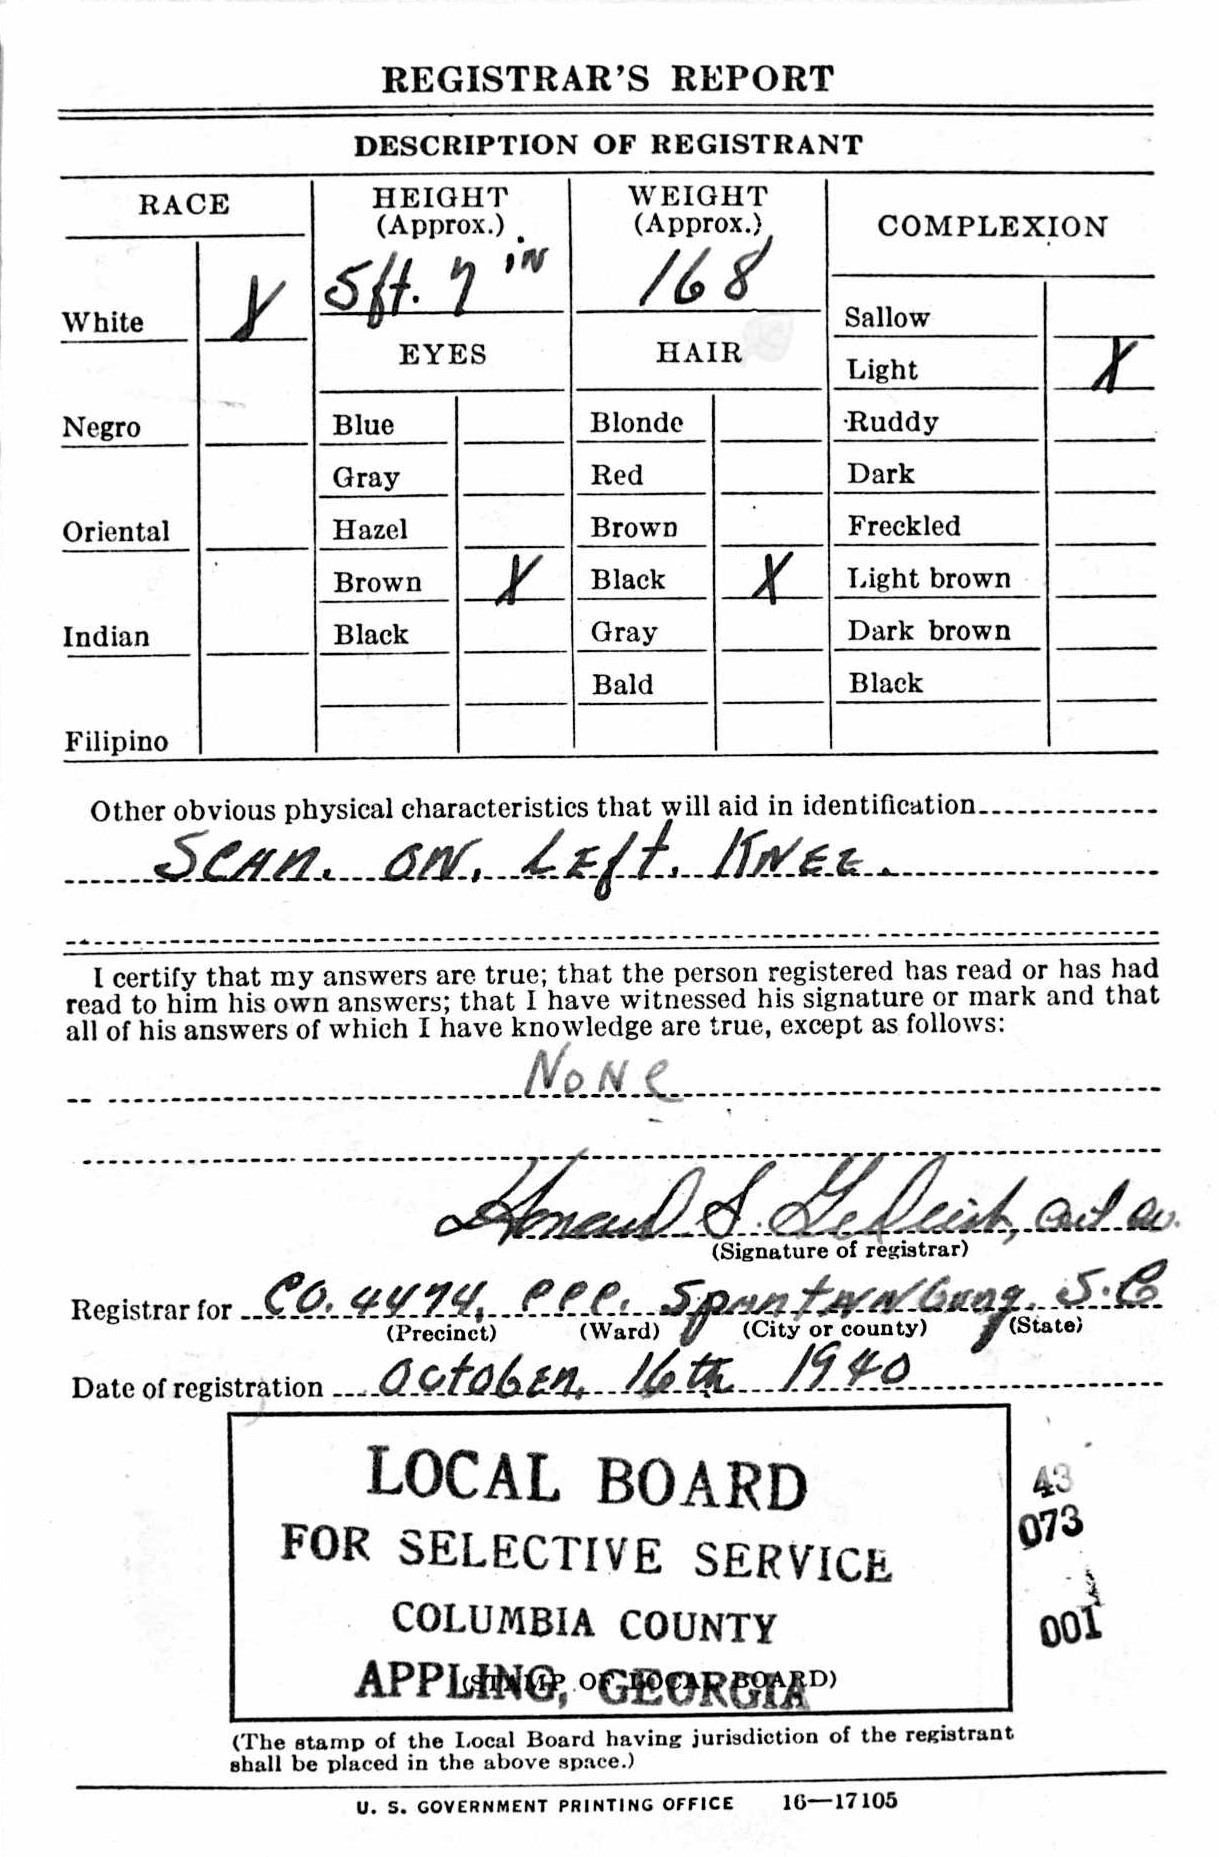 REGISTRAR'S REPORT
DESCRIPTION OF REGISTRANT
RACE
HEIGHT
(Approx.)
5ft. 7 in
WEIGHT
(Approx.)
168
COMPLEXION
White X
Negro
Oriental
Indian
Filipino
EYES
Blue
Gray
Hazel
Brown X
Black
HAIR
Blonde
Red
Brown
Black X
Gray
Bald
Sallow
Light X
Ruddy
Dark
Freckled
Light brown
Dark brown
Black
Other obvious physical characteristics that will aid in identification
SCAR. ON. LEft. KNEE.
I certify that my answers are true; that the person registered has read or has had
read to him his own answers; that I have witnessed his signature or mark and that
all of his answers of which I have knowledge are true, except as follows:
NoNe
S.
(Signature of registrar)
Registrar for CO. 4474, CCC. Spartanburg. S.C
(Precinct) (Ward) (City or county) (State)
Date of registration October, 16th 1940
LOCAL BOARD
FOR SELECTIVE SERVICE
COLUMBIA COUNTY
APPLING, GEORGIA
(STAMP OF LOCAL BOARD)
43
073
001
(The stamp of the Local Board having jurisdiction of the registrant
shall be placed in the above space.)
U. S. GOVERNMENT PRINTING OFFICE 16—17105